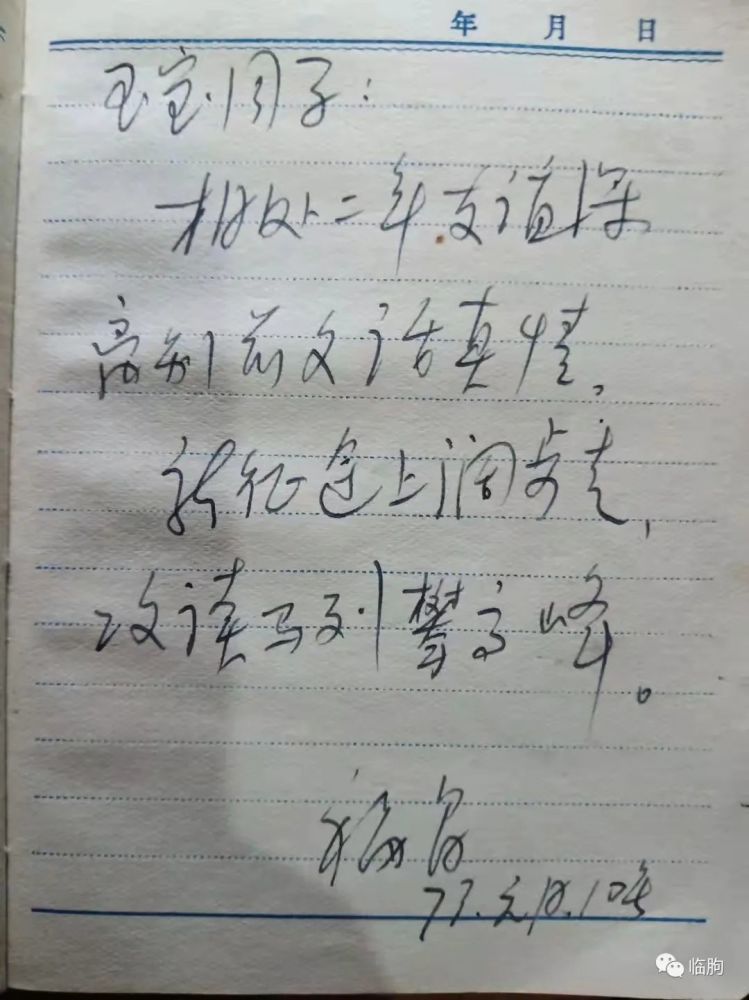 年 月 日
玉宝同志:
相处二年友谊深
离别前夕话真情,
新征途上阔步走,
攻读马列攀高峰。
73.元月.10号
临朐